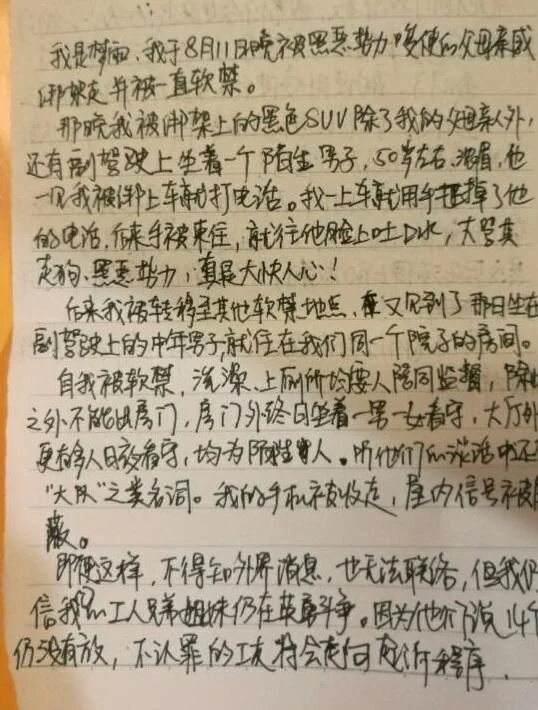 我是梦雨,我于8月11日晚被黑恶势力唆使的父母亲戚
绑架走并被一直软禁。
那晚我被绑架上的黑色SUV除了我的父母亲人外,
还有副驾驶上坐着一个陌生男子,50岁左右,浓眉,他
一见我被绑上车就打电话。我一上车就用手摁掉了他
的电话,后来手被束住,就往他脸上吐口水,大骂其
走狗、黑恶势力,真是大快人心!
后来我被转移至其他软禁地点,又见到了那日坐在
副驾驶上的中年男子,就住在我们同一个院子的房间。
自我被软禁,洗澡、上厕所均要人陪同监督,除此
之外不能出房门,房门外终日坐着一男一女看守,大厅外
更有多人日夜看守,均为陌生人。听他们的谈话中还
“大队”之类名词。我的手机被收走,屋内信号被屏
蔽。
即便这样,不得知外界消息,也无法联络,但我仍
信我的工人兄弟姐妹仍在英勇斗争。因为他们说14个
仍没有放,不认罪的工友将会走向起诉程序。